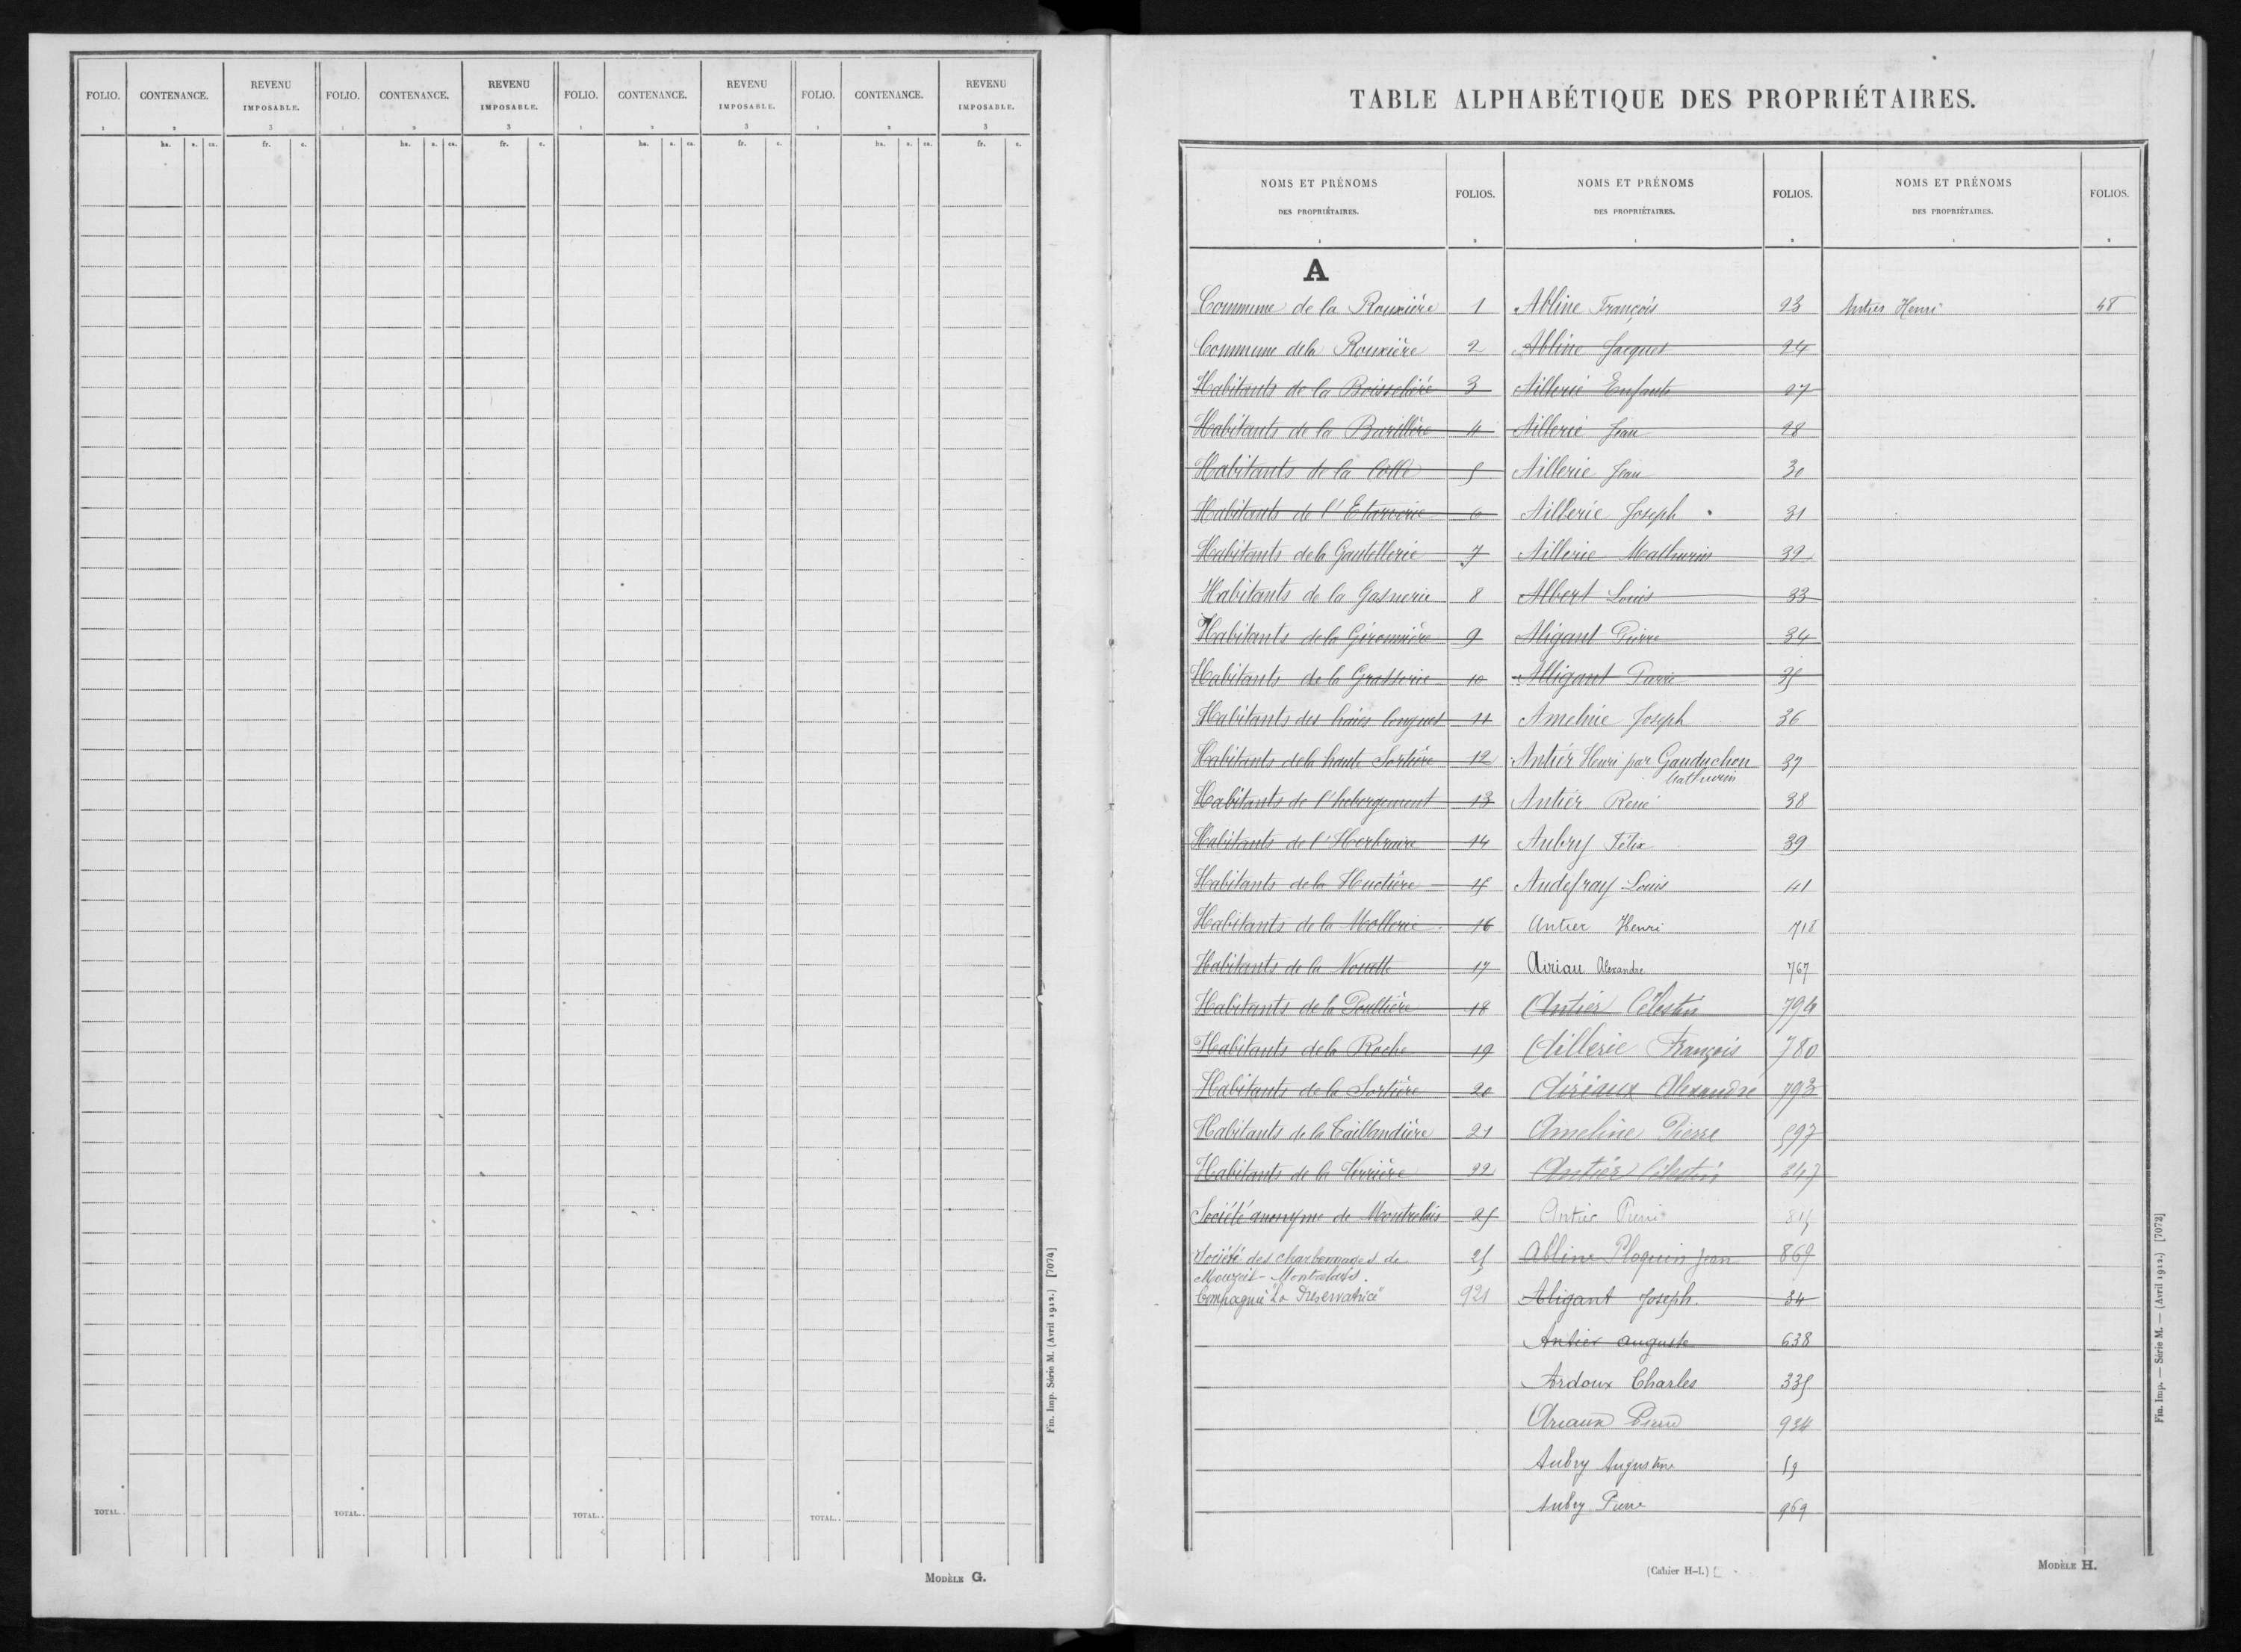 FOLIO. CONTENANCE. REVENU IMPOSABLE. FOLIO. CONTENANCE. REVENU IMPOSABLE. FOLIO. CONTENANCE. REVENU IMPOSABLE. FOLIO. CONTENANCE. REVENU IMPOSABLE.
1 2 3 1 2 3 1 2 3 1 2 3
ha. a. ca. fr. c. ha. a. ca. fr. c. ha. a. ca. fr. c. ha. a. ca. fr. c.
TOTAL.. TOTAL.. TOTAL.. TOTAL..
MODÈLE G.
Fin. Imp. Série M. (Avril 1912.) [7074]
TABLE ALPHABÉTIQUE DES PROPRIÉTAIRES.
NOMS ET PRÉNOMS DES PROPRIÉTAIRES. FOLIOS. NOMS ET PRÉNOMS DES PROPRIÉTAIRES. FOLIOS. NOMS ET PRÉNOMS DES PROPRIÉTAIRES. FOLIOS.
1 2 1 2 1 2
A
Commune de la Rouxière 1
Commune de la Rouxière 2
Habitants de la Boisselière 3
Habitants de la Burellière 4
Habitants de la Colle 5
Habitants de l'Etarcerie 6
Habitants de la Gautellerie 7
Habitants de la Gasnerie 8
Habitants de la Gironnière 9
Habitants de la Grasserie 10
Habitants des haies longues 11
Habitants de la haute Sortière 12
Habitants de l'hebergement 13
Habitants de l'Herbraire 14
Habitants de la Huctière 15
Habitants de la Mollerie 16
Habitants de la Nouelle 17
Habitants de la Poultière 18
Habitants de la Roche 19
Habitants de la Sortière 20
Habitants de la Taillandière 21
Habitants de la Verrière 22
Société anonyme de Montrelais 25
Société des charbonnages de 25
Mouzeil-Montrelais.
Compagnie "La Préservatrice" 921
Abline François 23
Abline Jacques 24
Aillerie Enfants 27
Aillerie Jean 28
Aillerie Jean 30
Aillerie Joseph 31
Aillerie Mathurin 32
Albert Louis 33
Aligant Pierre 34
Alligant Pierre 35
Ameline Joseph 36
Antier Henri par Gauduchon 37
Mathurin
Antier René 38
Aubry Félix 39
Audefray Louis 41
Antier Henri 718
Airiau Alexandre 767
Antier Célestin 794
Aillerie François 780
Airiaux Alexandre 793
Ameline Pierre 597
Antier Célestin 847
Antier Pierre 815
Abline Ploquin Jean 869
Aligant Joseph. 34
Antier auguste 638
Ardoux Charles 335
Areaux Pierre 934
Aubry Augustine 59
Aubry Pierre 969
Antier Henri 48
(Cahier H-I.)
MODÈLE H.
Fin. Imp. — Série M. — (Avril 1912.) [7073]